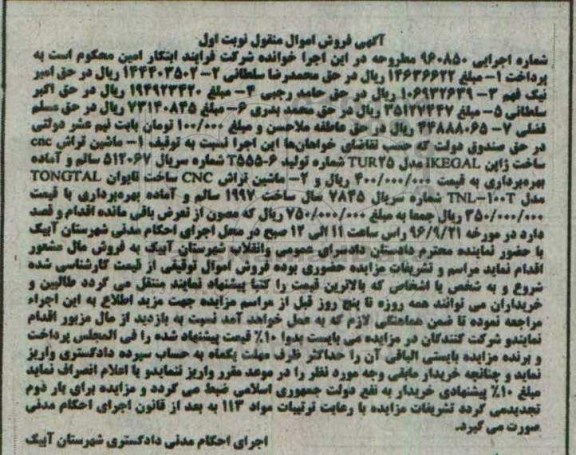 آگهی فروش اموال منقول نوبت اول
شماره اجرایی ۹۶۰۸۵۰ مطروحه در این اجرا خوانده شرکت فرایند ابتکار امین محکوم است به
پرداخت ۱- مبلغ ۱۴۶۳۶۶۲۲ ریال در حق محمدرضا سلطانی ۲- ۱۴۴۴۰۳۵۰۲ ریال در حق امیر
نیک فهم ۳- ۱۰۶۹۳۲۶۳۹ ریال در حق حامد رجبی ۴- مبلغ ۱۹۴۹۲۳۴۲۰ ریال در حق اکبر
سلطانی ۵- مبلغ ۳۵۱۲۷۴۴۷ ریال در حق محمد بدری ۶- مبلغ ۷۳۱۴۰۸۴۵ ریال در حق مسلم
فضلی ۷- ۴۴۸۸۸۰۶۵ ریال در حق عاطفه ملاحسن و مبلغ ۱۰۰/۰۰۰ تومان بابت نیم عشر دولتی
در حق صندوق دولت که حسب تقاضای خواهان‌ها این اجرا نسبت به توقیف ۱- ماشین تراش cnc
ساخت ژاپن IKEGAL مدل TUR25 شماره تولید T555-6 شماره سریال ۵۱۴۰۶۷ سالم و آماده
بهره‌برداری به قیمت ۴۰۰/۰۰۰/۰۰۰ ریال و ۲- ماشین تراش CNC ساخت تایوان TONGTAL
مدل TNL-100T شماره سریال ۷۸۴۵ سال ساخت ۱۹۹۷ سالم و آماده بهره‌برداری با قیمت
۳۵۰/۰۰۰/۰۰۰ ریال جمعا به مبلغ ۷۵۰/۰۰۰/۰۰۰ ریال که مصون از تعرض باقی مانده اقدام و قصد
دارد در مورخه ۹۶/۹/۲۱ راس ساعت ۱۱ الی ۱۲ صبح در محل اجرای احکام مدنی شهرستان آبیک
با حضور نماینده محترم دادستان دادسرای عمومی وانقلاب شهرستان آبیک به فروش مال مشعور
اقدام نماید مراسم و تشریفات مزایده حضوری بوده فروش اموال توقیفی از قیمت کارشناسی شده
شروع و به شخص یا اشخاص که بالاترین قیمت را کتبا پیشنهاد نمایند منتقل می گردد طالبین و
خریداران می توانند همه روزه تا پنج روز قبل از مراسم مزایده جهت مزید اطلاع به این اجراء
مراجعه نموده تا ضمن هماهنگی لازم که به عمل خواهد آمد نسبت به بازدید از مال مزبور اقدام
نمایندو شرکت کنندگان در مزایده می بایست بدوا ۱۰٪ قیمت پیشنهاد شده را فی المجلس پرداخت
و برنده مزایده بایستی الباقی آن را حداکثر ظرف مهلت یکماه به حساب سپرده دادگستری واریز
نماید و چنانچه خریدار مابقی وجه مورد نظر را در موعد مقرر واریز ننمایدو یا اعلام انصراف نماید
مبلغ ۱۰٪ پیشنهادی خریدار به نفع دولت جمهوری اسلامی ضبط می گردد و مزایده برای بار دوم
تجدیدمی گردد تشریفات مزایده با رعایت ترتیبات مواد ۱۱۳ به بعد از قانون اجرای احکام مدنی
صورت می گیرد.
اجرای احکام مدنی دادگستری شهرستان آبیک